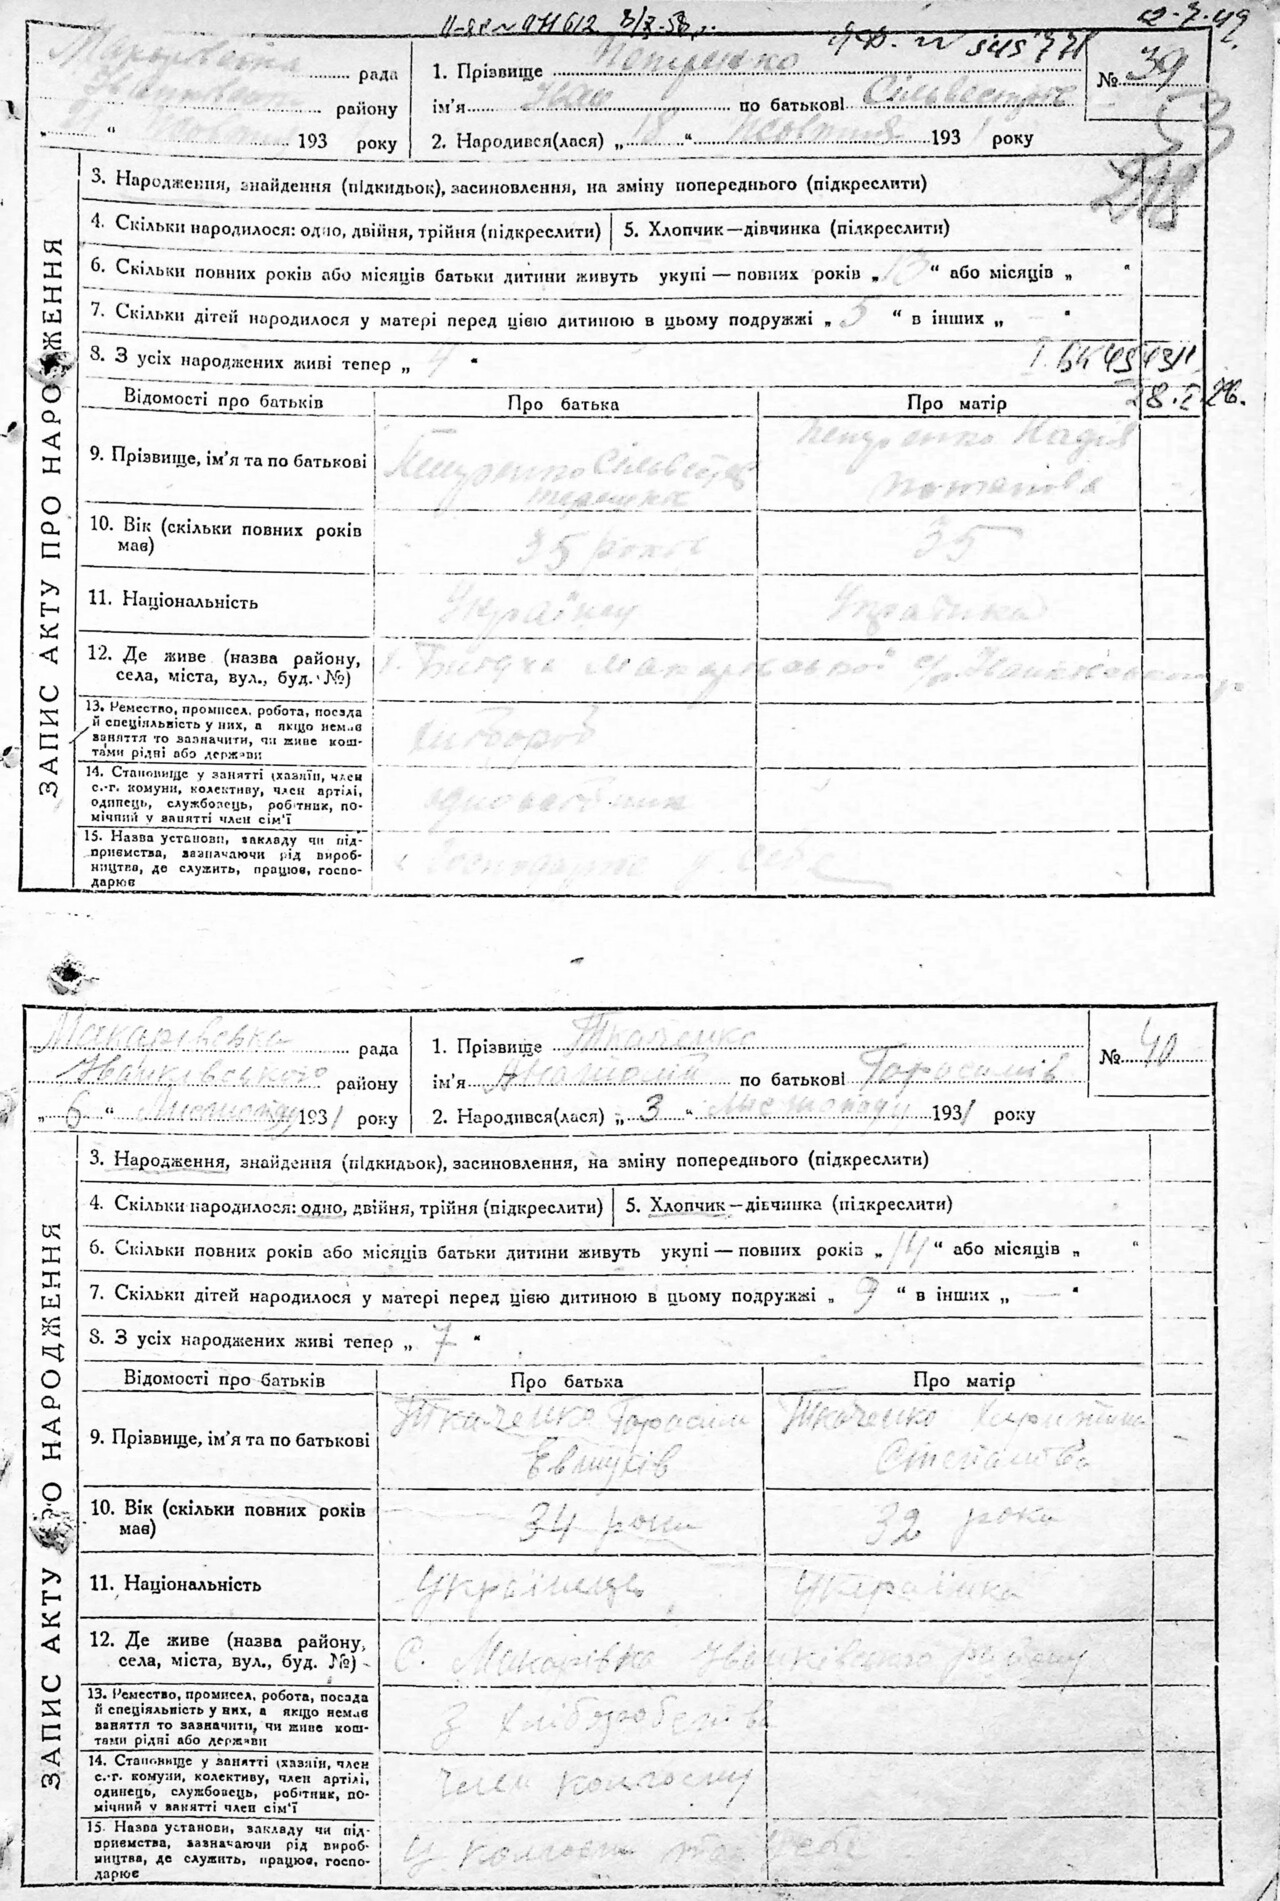 12-7-49
рада
району
193 року
1. Прізвище Петренко
ім'я Іван по батькові Сільвестров
2. Народився(лася) „ 18 “ Жовтня 1931 року
№ 39
53
218
ЗАПИС АКТУ ПРО НАРОДЖЕННЯ
3. Народження, знайдення (підкидьок), засиновлення, на зміну попереднього (підкреслити)
4. Скільки народилося: одно, двійня, трійня (підкреслити) 5. Хлопчик—дівчинка (підкреслити)
6. Скільки повних років або місяців батьки дитини живуть укупі — повних років „ 13 “ або місяців „ “
7. Скільки дітей народилося у матері перед цією дитиною в цьому подружжі „ 5 “ в інших „ — “
8. З усіх народжених живі тепер „ 4 “
Відомості про батьків Про батька Про матір
9. Прізвище, ім'я та по батькові
Петренко Сільвестр
Петренко Надія
10. Вік (скільки повних років має)
35 років 35
11. Національність
Українець Українка
12. Де живе (назва району, села, міста, вул., буд. №)
13. Ремество, промисел, робота, посада й спеціяльність у них, а якщо немає заняття то зазначити, чи живе коштами рідні або держави
хлібороб
14. Становище у занятті (хазяїн, член с.-г. комуни, колективу, член артілі, одинець, службовець, робітник, помічний у занятті член сім'ї
одноосібник
15. Назва установи, закладу чи підприємства, зазначаючи рід виробництва, де служить, працює, господарює
Макарівська рада
Іванківського району
„ 6 “ Листопаду 1931 року
1. Прізвище Ткаченко
ім'я Анатолій по батькові Гарасимів
2. Народився(лася) „ 3 “ Листопаду 1931 року
№ 40
ЗАПИС АКТУ ПРО НАРОДЖЕННЯ
3. Народження, знайдення (підкидьок), засиновлення, на зміну попереднього (підкреслити)
4. Скільки народилося: одно, двійня, трійня (підкреслити) 5. Хлопчик—дівчинка (підкреслити)
6. Скільки повних років або місяців батьки дитини живуть укупі — повних років „ 14 “ або місяців „ “
7. Скільки дітей народилося у матері перед цією дитиною в цьому подружжі „ 9 “ в інших „ — “
8. З усіх народжених живі тепер „ 7 “
Відомості про батьків Про батька Про матір
9. Прізвище, ім'я та по батькові
Ткаченко Гарасим
Ткаченко
Степанівна
10. Вік (скільки повних років має)
34 роки 32 роки
11. Національність
Українець Українка
12. Де живе (назва району, села, міста, вул., буд. №)
С. Макарівка Іванківського району
13. Ремество, промисел, робота, посада й спеціяльність у них, а якщо немає заняття то зазначити, чи живе коштами рідні або держави
з хліборобства
14. Становище у занятті (хазяїн, член с.-г. комуни, колективу, член артілі, одинець, службовець, робітник, помічний у занятті член сім'ї
член колгоспу
15. Назва установи, закладу чи підприємства, зазначаючи рід виробництва, де служить, працює, господарює
У колгоспі та у себе